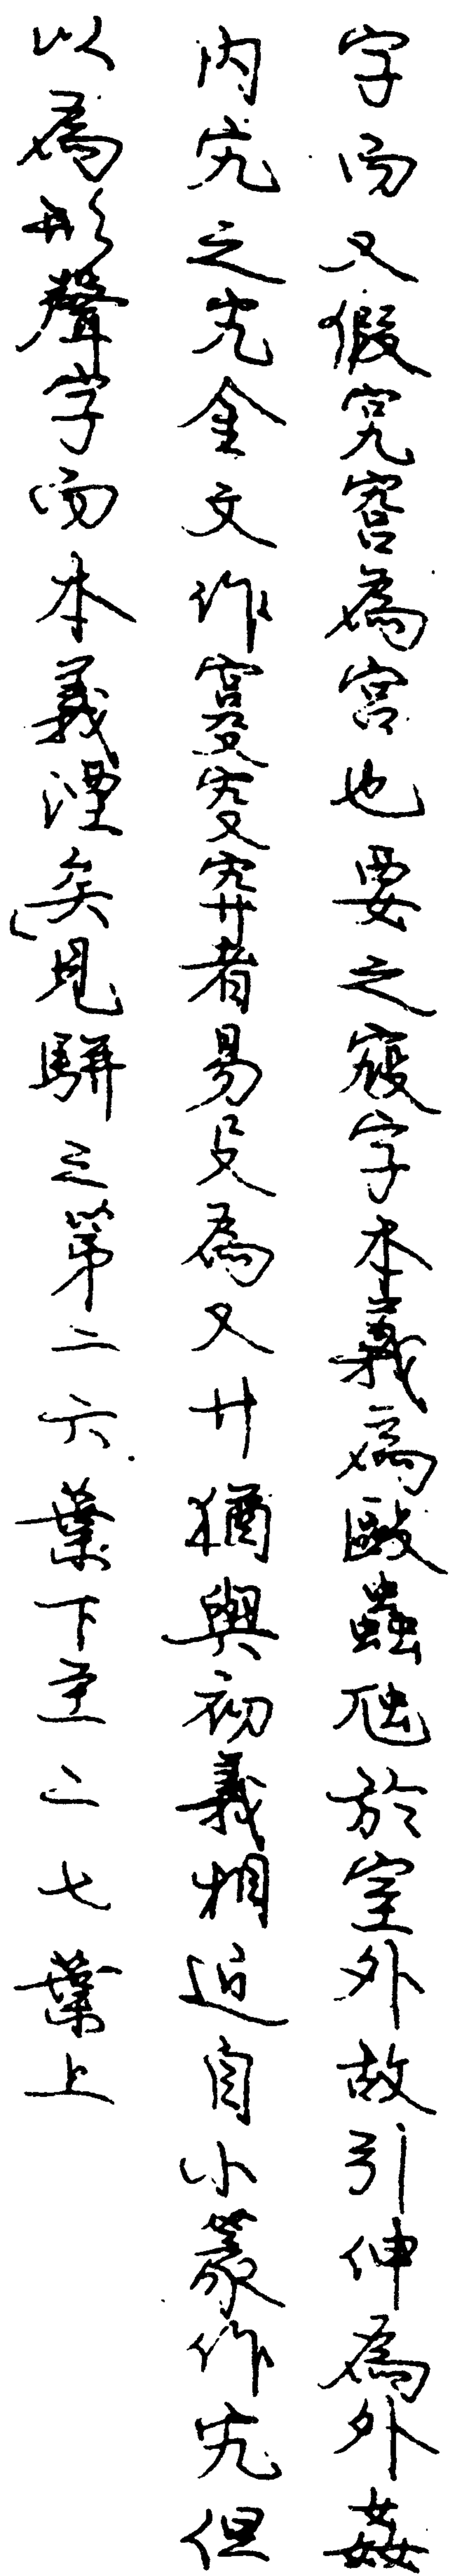 字而又假宄䆪為宮也要之㝌字本義為毆蟲虺於室外故引伸為外姦
内宄之宄金文作㝌㝌宑者易殳為又廾猶與初義相近自小篆作宄但
以為形聲字而本義湮矣」見駢之第二六葉下至二七葉上